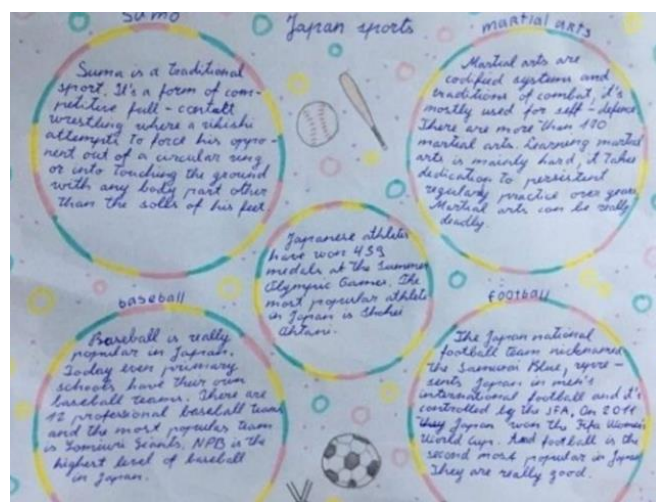 Japan sports
Sumo
Suma is a traditional
sport. It's a form of com-
petitive full-contalt
wrestling where a rikishi
attempts to force his oppo-
nent out of a circular ring
or into touching the ground
with any body part other
than the solls of his feet
martial arts
Martial arts are
codified systems and
traditions of combat, it's
mostly used for self-defence
There are more than 190
martial arts. Learning martial
arts is mainly hard, it takes
dedication to persistent
regulary practice over years
Martial arts can be really
deadly.
Japanese athletes
have won 439
medals at the Summer
Olympic Games. The
most popular athlete
in Japan is Shohei
Ohtani.
baseball
Baseball is really
popular in Japan.
Today even primary
schools have their own
baseball teams. There are
12 professional baseball teams
and the most popular team
is Yomiuri Giants, NPB is the
highest level of baseball
in Japan.
football
The Japan national
football team nicknamed
the Samurai Blue, repre-
sents Japan in men's
international football and it's
controlled by the JFA. On 2011
they Japan won the Fifa Women
World Cup. And football is the
second most popular in Japan
They are really good.